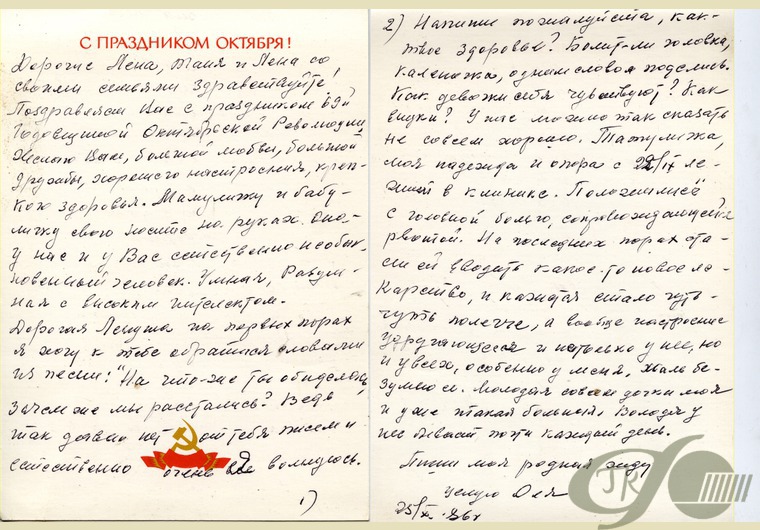 С ПРАЗДНИКОМ ОКТЯБРЯ!
Дорогие Лена, Таня и Лена со
своими семьями здравствуйте
Поздравляем Вас с праздником 69й
годовщиной Октябрьской Революции
Желаю Вам, большой любви, большой
дружбы, хорошего настроения, креп-
кого здоровья. Мамулижу и бабу-
личку свою носите на руках. Она-
у нас и у Вас естественно необык-
новенный человек. Умная, Разум-
ная с высоким интелектом.
Дорогая Ленуша на первых порах
я хочу к тебе обратится словами
из песни: "На что-же ты обиделась,
зачем же мы расстались? Ведь
так давно нет от тебя писем и
естественно очень волнуюсь.
1)
2) Напиши пожалуйста, как-
твое здоровье? Болит-ли головка,
коленижка, одним словом поделись.
Как девожки себя чувствуют? Как
внуки? У нас можно так сказать
не совсем хорошо. Татулижка,
моя надежда и опора с 22/IX ле-
жит в клинике. Положили её
с головной болью, сопровождающейся
рвотой. На последних порах ста-
ли ей вводить какое-то новое ле-
карство, и кажется стало чуть-
чуть полегче, а вообще настроение
удручающееся и не только у неё, но
и у всех, особенно у меня. Жаль бе-
зумно её. Молодая совсем дочка моя
и уже такая больная. Володя у
нее бывает почти каждый день.
Пиши моя родная жду
Целую Оля
25/X 86г
JR